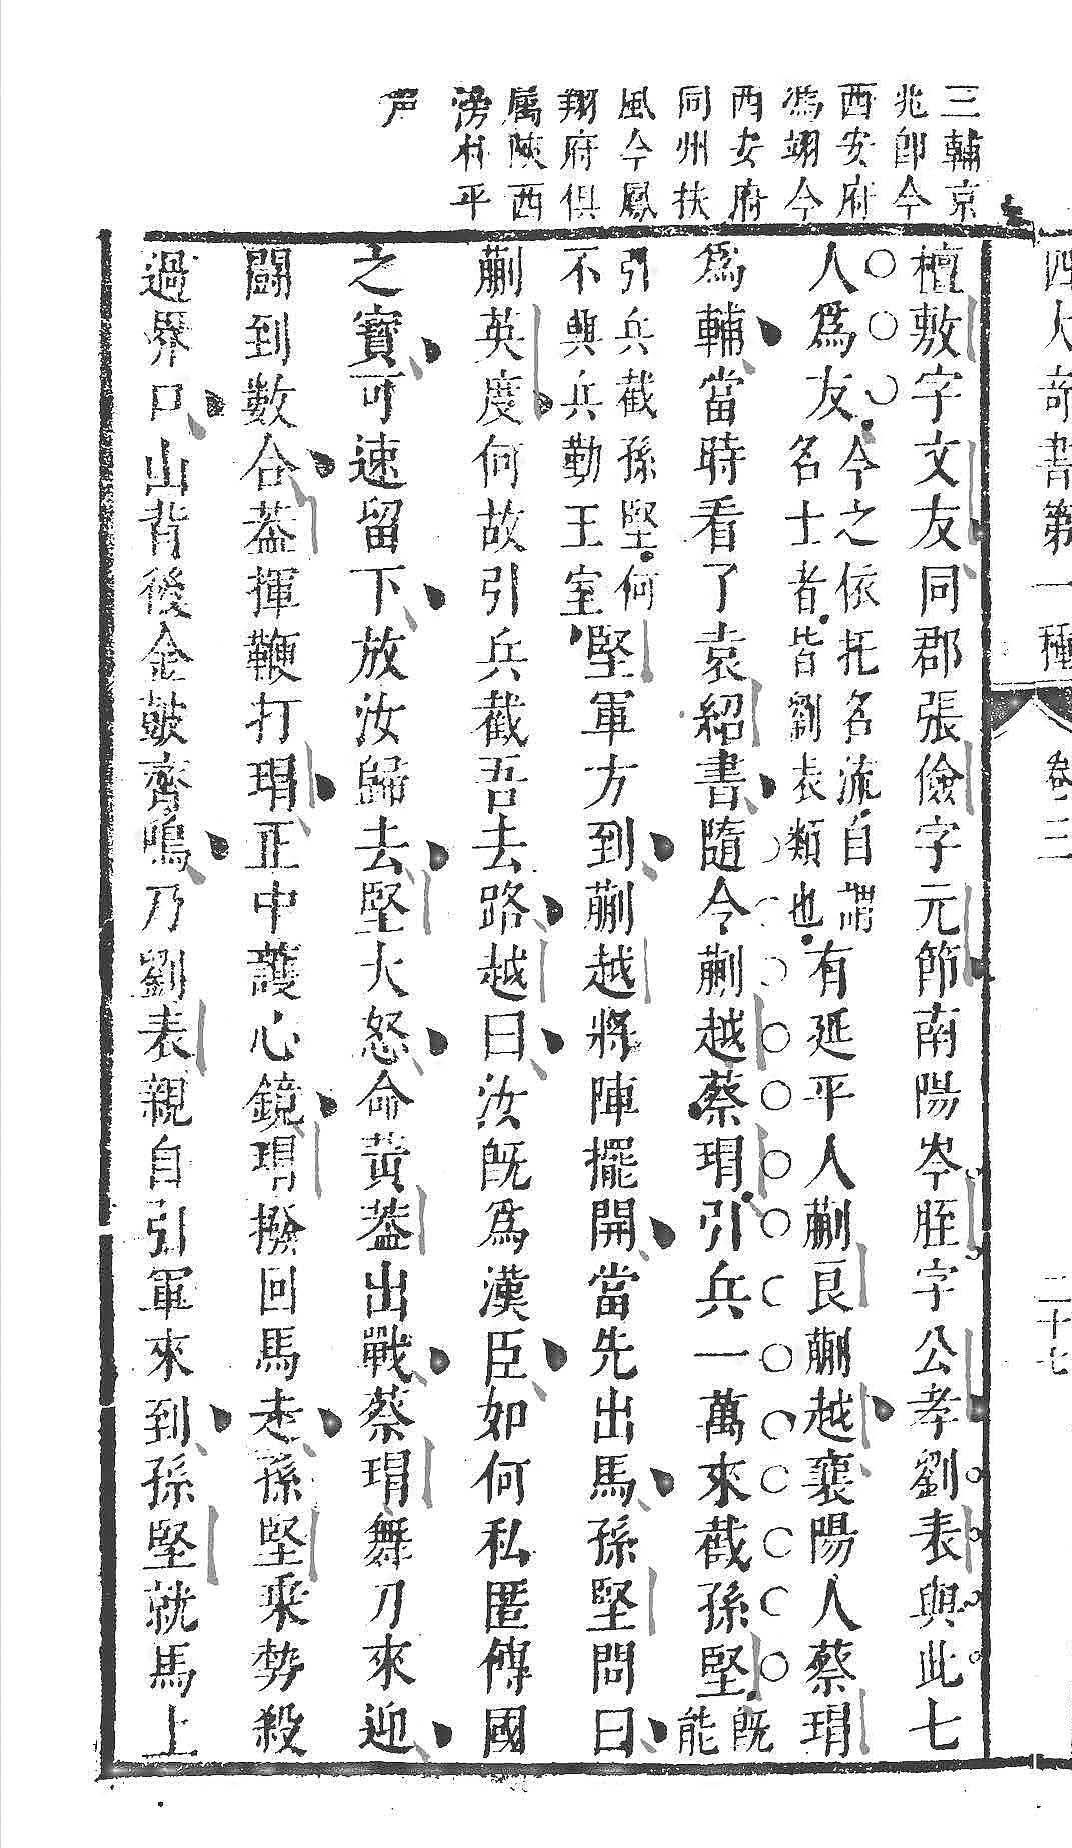 四大奇書第一種　卷三　二十七
三輔京
兆即今
西安府
馮翊今
西安府
同州扶
風今鳳
翔府俱
屬陝西
滂朴平
声
檀敷字文友同郡張儉字元節南陽岑晊字公孝劉表與此七
人爲友今之依托名流自謂名士者皆劉表類也有延平人蒯良蒯越襄陽人蔡瑁
爲輔當時看了袁紹書隨令蒯越蔡瑁引兵一萬來截孫堅既能
引兵截孫堅何不與兵勤王室堅軍方到蒯越將陣擺開當先出馬孫堅問曰
蒯英度何故引兵截吾去路越曰汝既爲漢臣如何私匿傳國
之寶可速留下放汝歸去堅大怒命黃蓋出戰蔡瑁舞刀來迎
鬭到數合蓋揮鞭打瑁正中護心鏡瑁撥回馬走孫堅乘勢殺
過界口山背後金鼓齊鳴乃劉表親自引軍來到孫堅就馬上